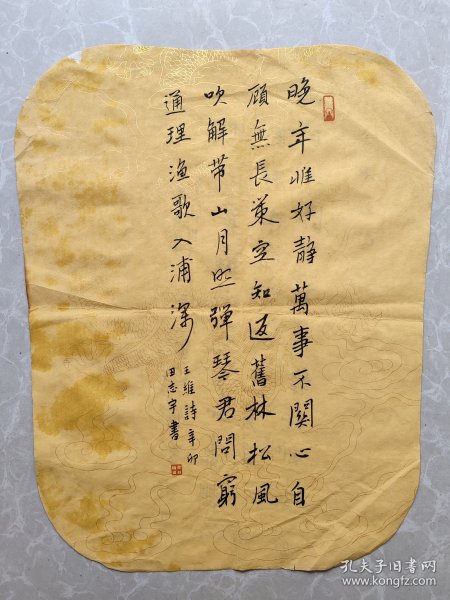 晚年惟好静萬事不関心自
顧無長策空知返舊林松風
吹解带山月照彈琴君問窮
通理漁歌入浦深
王維詩辛卯
田志宇書
孔夫子旧书网
www.kongfz.com